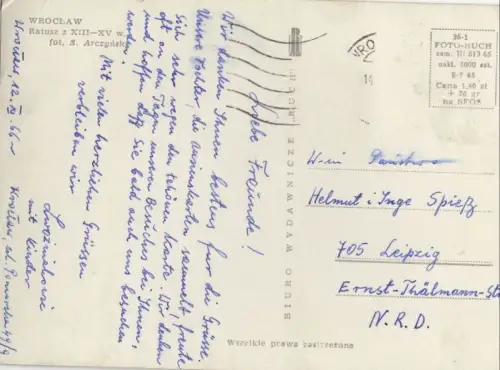 WROCŁAW
Ratusz z XIII-XV w.
fot. S. Arczyński
Wrocław, 12. XI. 66 r
Liebe Freunde!
Wir danken Ihnen bestens für die Grüsse.
Unsere Tochter, die Ansichtskarten sammelt, freute
sich sehr wegen der schönen Karte. Wir denken
oft an den Tagen unseres Besuches bei Ihnen,
und hoffen, dass Sie bald auch uns besuchen
werden.
Mit vielen herzlichen Grüssen
verbleiben wir
mit Kinder
Wrocław, ul. Pomorska 49/9
BIURO WYDAWNICZE „RUCH"
WRO
36-1
FOTO-RUCH
zam. III 613 65
nakl. 5000 egz.
Cena 1,40 zł
+ 20 gr
na SFOS
W-ni Państwo
Helmut i Inge Spieß
705 Leipzig
Ernst-Thälmann-St
N.R.D.
Wszelkie prawa zastrzeżone